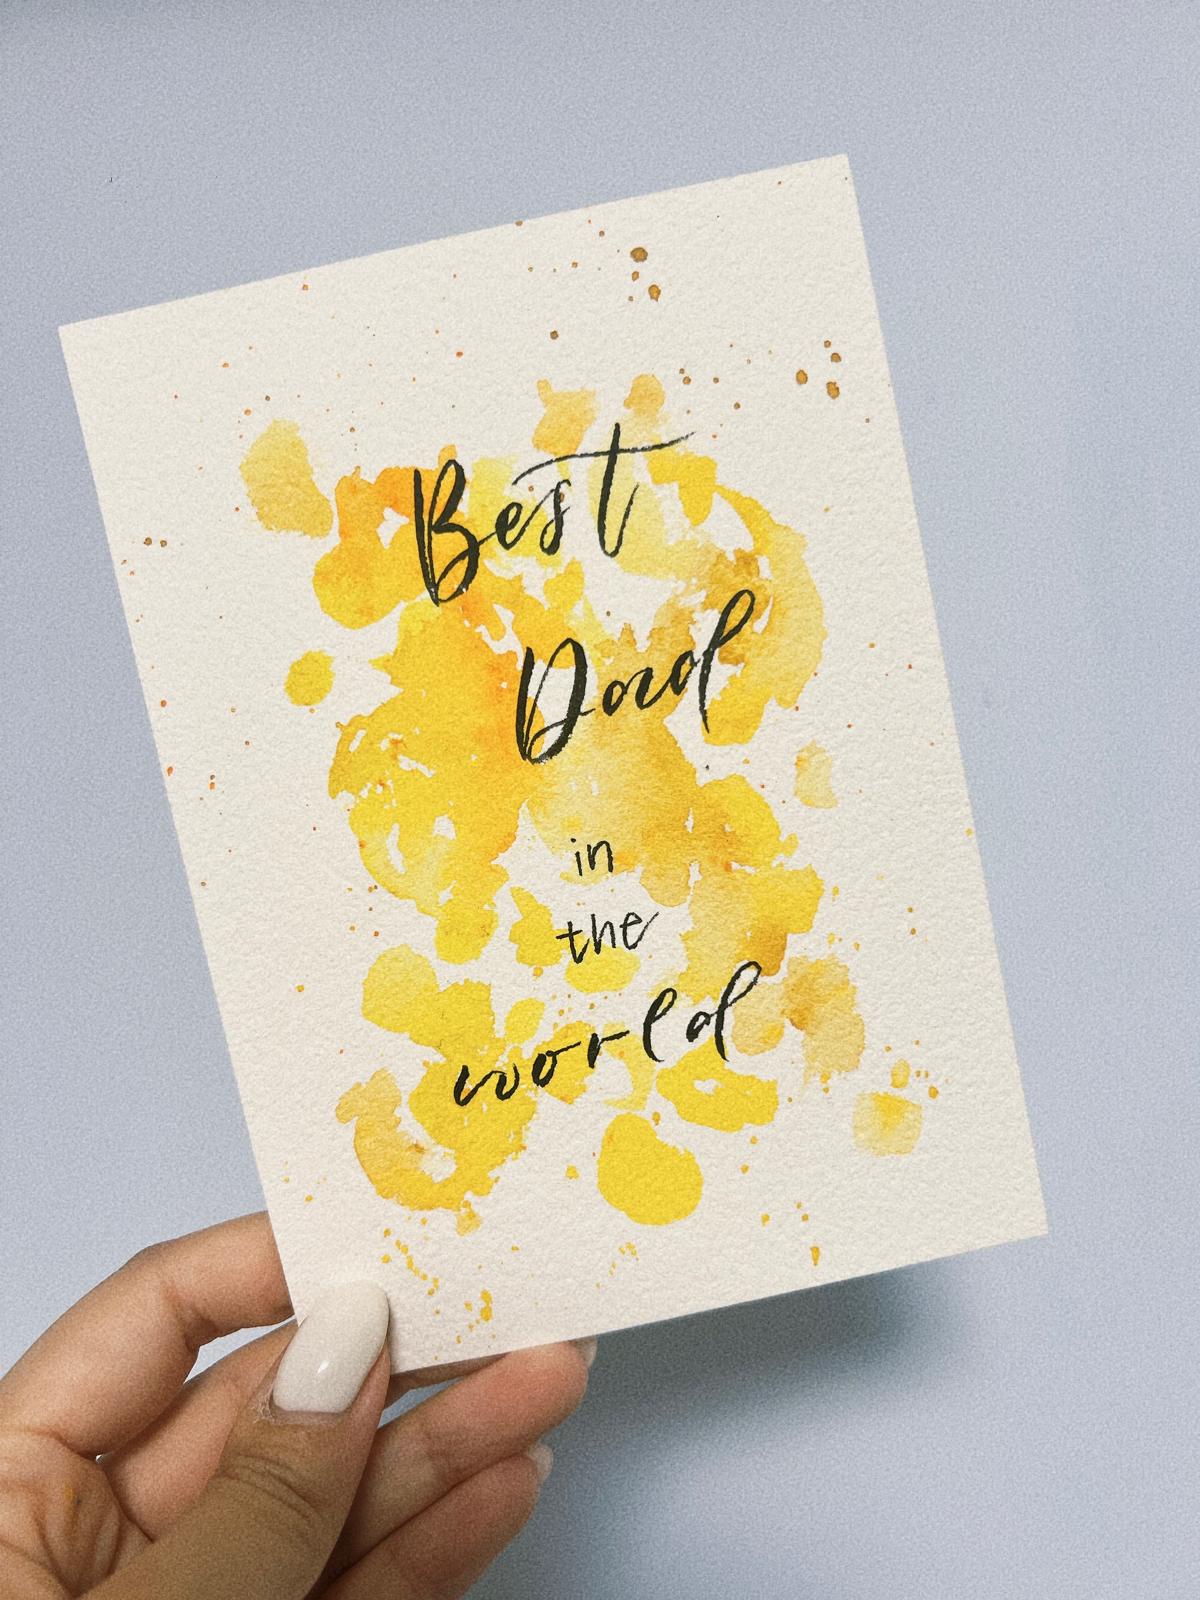 Best
Dad
in
the
world